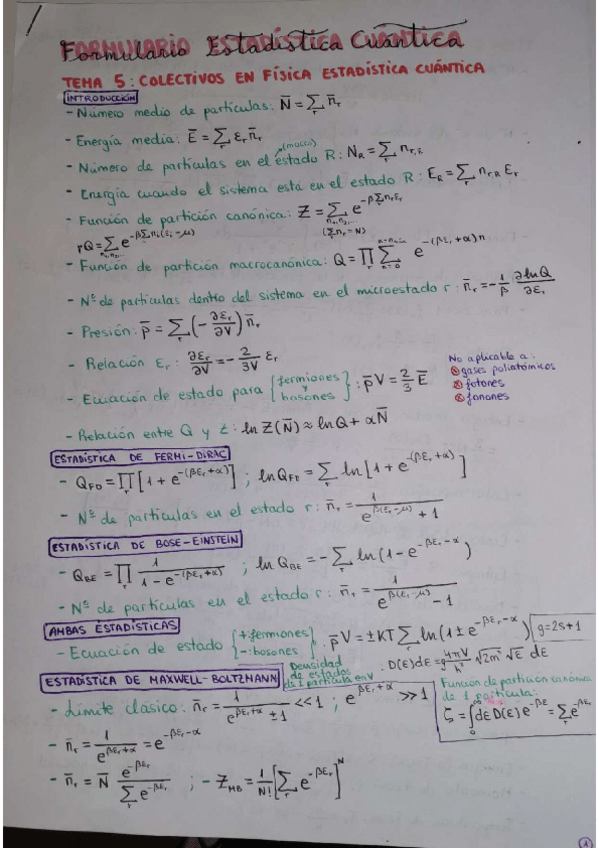 Formulario Estadística Cuántica
TEMA 5: COLECTIVOS EN FÍSICA ESTADÍSTICA CUÁNTICA
INTRODUCCIÓN
- Número medio de partículas: N̄ = Σ_r n̄_r
- Energía media: Ē = Σ_r ε_r n̄_r
(macro)
- Número de partículas en el estado R: N_R = Σ_r n_{r,R}
- Energía cuando el sistema está en el estado R: E_R = Σ_r n_{r,R} ε_r
- Función de partición canónica: Z = Σ_{n₁,n₂,...} e^{-βΣ_r n_r ε_r}
(Σ_r n_r = N)
Q = Σ_{n₁,n₂...} e^{-βΣ n_i(ε_i - μ)}
- Función de partición macrocanónica: Q = Π_r Σ_{n=0} e^{-(βε_r + α)n}
- Nº de partículas dentro del sistema en el microestado r: n̄_r = -1/β ∂lnQ/∂ε_r
- Presión: p̄ = Σ_r (-∂ε_r/∂V) n̄_r
- Relación ε_r: ∂ε_r/∂V = -2/3V ε_r
- Ecuación de estado para {fermiones y bosones}: p̄V = 2/3 Ē
No aplicable a:
⊗ gases poliatómicos
⊗ fotones
⊗ fonones
- Relación entre Q y Z: ln Z(N̄) ≈ ln Q + αN̄
ESTADÍSTICA DE FERMI-DIRAC
- Q_FD = Π_r [1 + e^{-(βε_r + α)}] ; ln Q_FD = Σ_r ln [1 + e^{-(βε_r + α)}]
- Nº de partículas en el estado r: n̄_r = 1/(e^{β(ε_r - μ)} + 1)
ESTADÍSTICA DE BOSE-EINSTEIN
- Q_BE = Π_r 1/(1 - e^{-(βε_r + α)}) ; ln Q_BE = -Σ_r ln(1 - e^{-βε_r - α})
- Nº de partículas en el estado r: n̄_r = 1/(e^{β(ε_r - μ)} - 1)
AMBAS ESTADÍSTICAS
- Ecuación de estado {+: fermiones, -: bosones}: p̄V = ±KT Σ_r ln(1 ± e^{-βε_r - α})
g = 2s + 1
Densidad de estados de 1 partícula en V: D(ε)dε = g 4πV/h³ √2m³ √ε dε
ESTADÍSTICA DE MAXWELL-BOLTZMANN
- Límite clásico: n̄_r = 1/(e^{βε_r + α} ± 1) << 1 ; e^{βε_r + α} >> 1
Función de partición canónica
de 1 partícula:
ζ = ∫₀^∞ dε D(ε) e^{-βε} = Σ_r e^{-βε_r}
- n̄_r = 1/e^{βε_r + α} = e^{-βε_r - α}
- n̄_r = N̄ e^{-βε_r}/Σ_r e^{-βε_r} ; - Z_MB = 1/N! [Σ_r e^{-βε_r}]^N
1